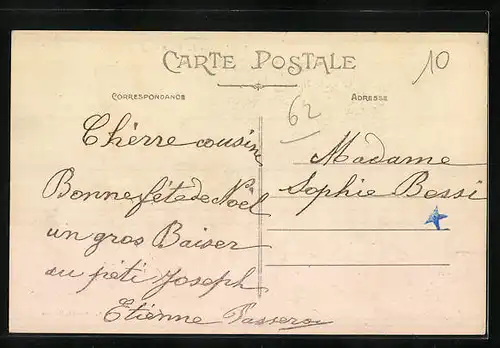 CARTE POSTALE
10
CORRESPONDANCE
ADRESSE
62
Chèrre cousine
Bonne fête de Noël
un gros Baiser
au peti Joseph
Etiénne Passero
Madame
Sophie Bessi